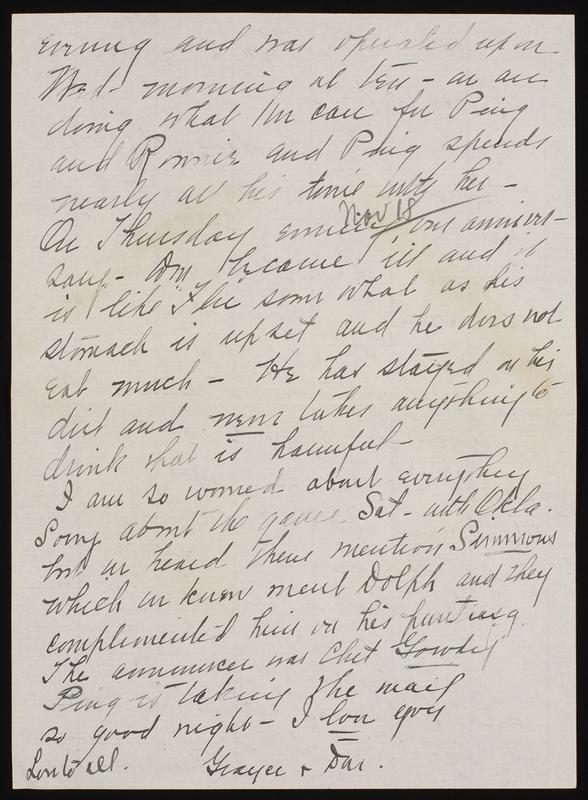 evening and was operated upon
Wed - morning at ten - we are
doing what we can for Ping
and Ronnie and Ping spends
nearly all his time with her -
Nov 18
On Thursday evening our anniver-
sary - became ill and it
is like "Flu" some what as his
stomach is upset and he does not
eat much - He has stayed on his
diet and never takes anything to
drink that is harmful -
I am so worried about everything
Sorry about the game Sat - with Okla.
but we heard them mention Simmons
which we knew meant Dolph and they
complimented him on his punting
The announcer was Chet Gowdy
Ping is taking the mail
so good night - I love you
Love to all. Grayce +